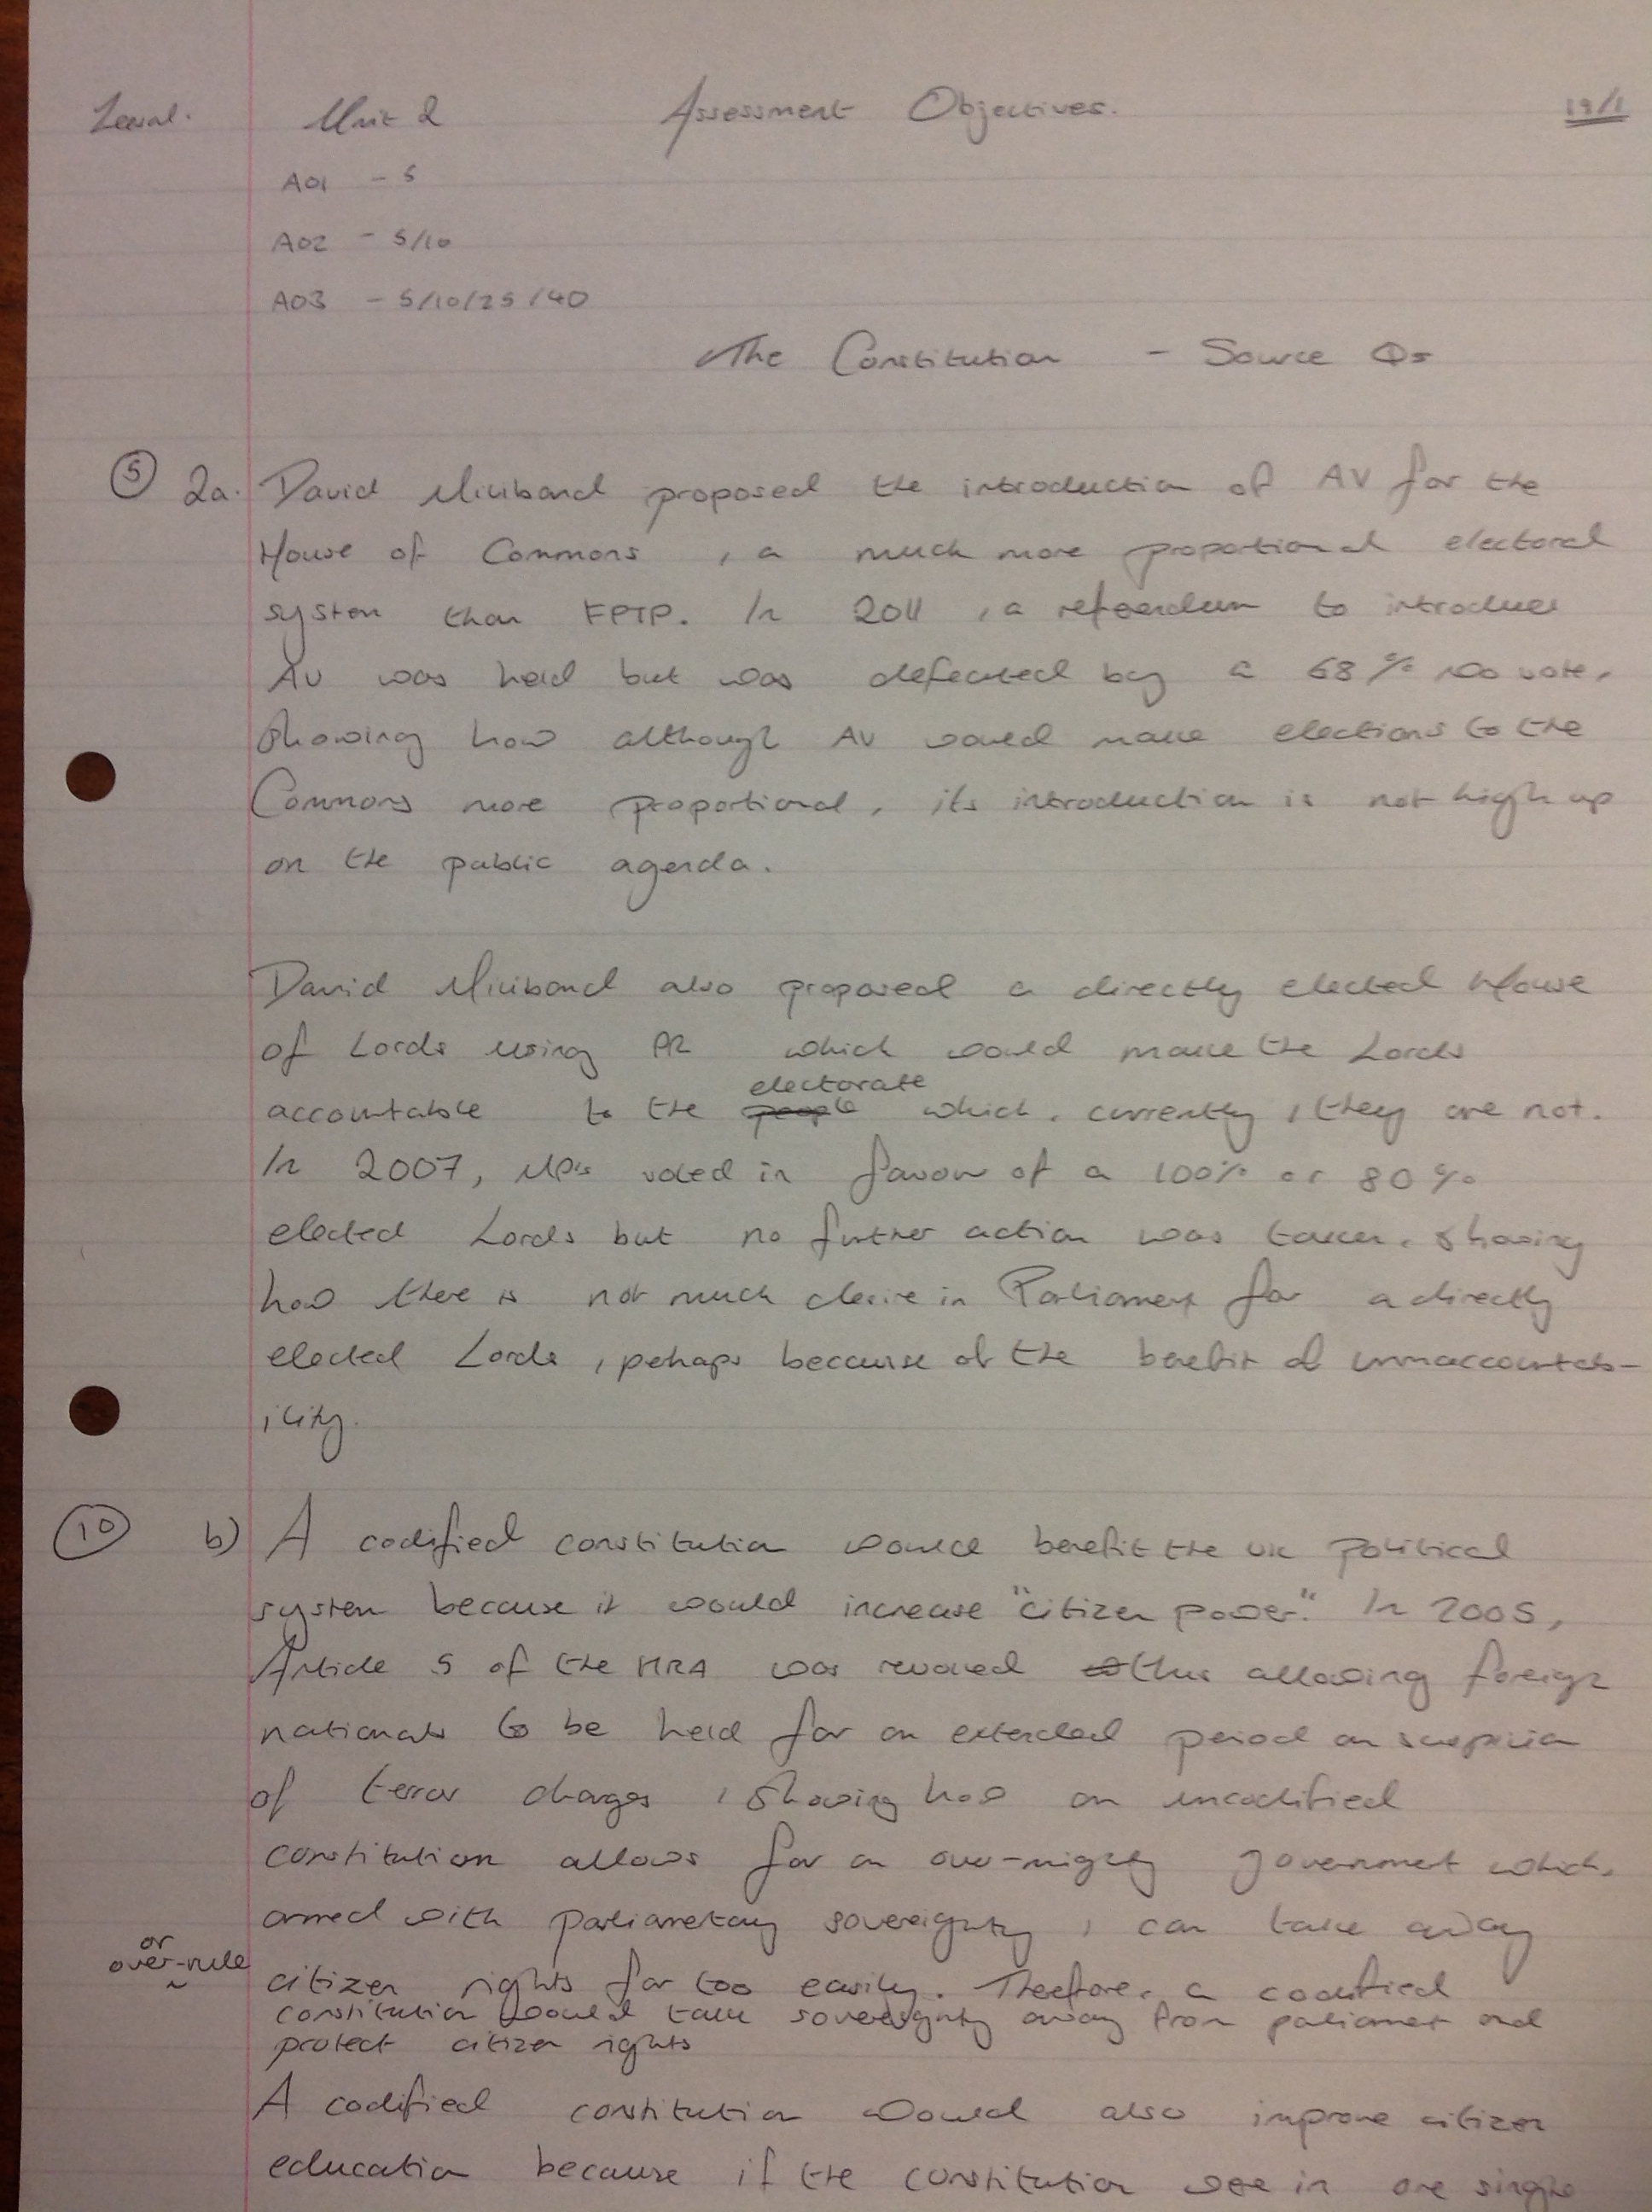 Level. Unit 2 Assessment Objectives. 19/1
AO1 - 5
AO2 - 5/10
AO3 - 5/10/25/40
The Constitution - Source Qs
5 2a. David Miliband proposed the introduction of AV for the
House of Commons, a much more proportional electoral
system than FPTP. In 2011, a referendum to introduce
AV was held but was defeated by a 68% no vote,
showing how although AV would make elections to the
Commons more proportional, its introduction is not high up
on the public agenda.
David Miliband also proposed a directly elected House
of Lords using PR which would make the Lords
electorate
accountable to the people which, currently, they are not.
In 2007, MPs voted in favour of a 100% or 80%
elected Lords but no further action was taken, showing
how there is not much desire in Parliament for a directly
elected Lords, pehaps because of the benefit of unnaccountab-
ility.
10 b) A codified constitution would benefit the UK political
system because it would increase "citizen power". In 2005,
Article 5 of the HRA was revoked thus allowing foreign
nationals to be held for an extended period on suspicion
of terror charges, showing how an uncodified
constitution allows for an over-mighty government which,
armed with parliamentary sovereignty, can take away
or
over-rule
citizen rights far too easily. Therefore, a codified
constitution would take sovereignty away from parliament and
protect citizen rights
A codified constitution would also improve citizen
education because if the constitution were in one single